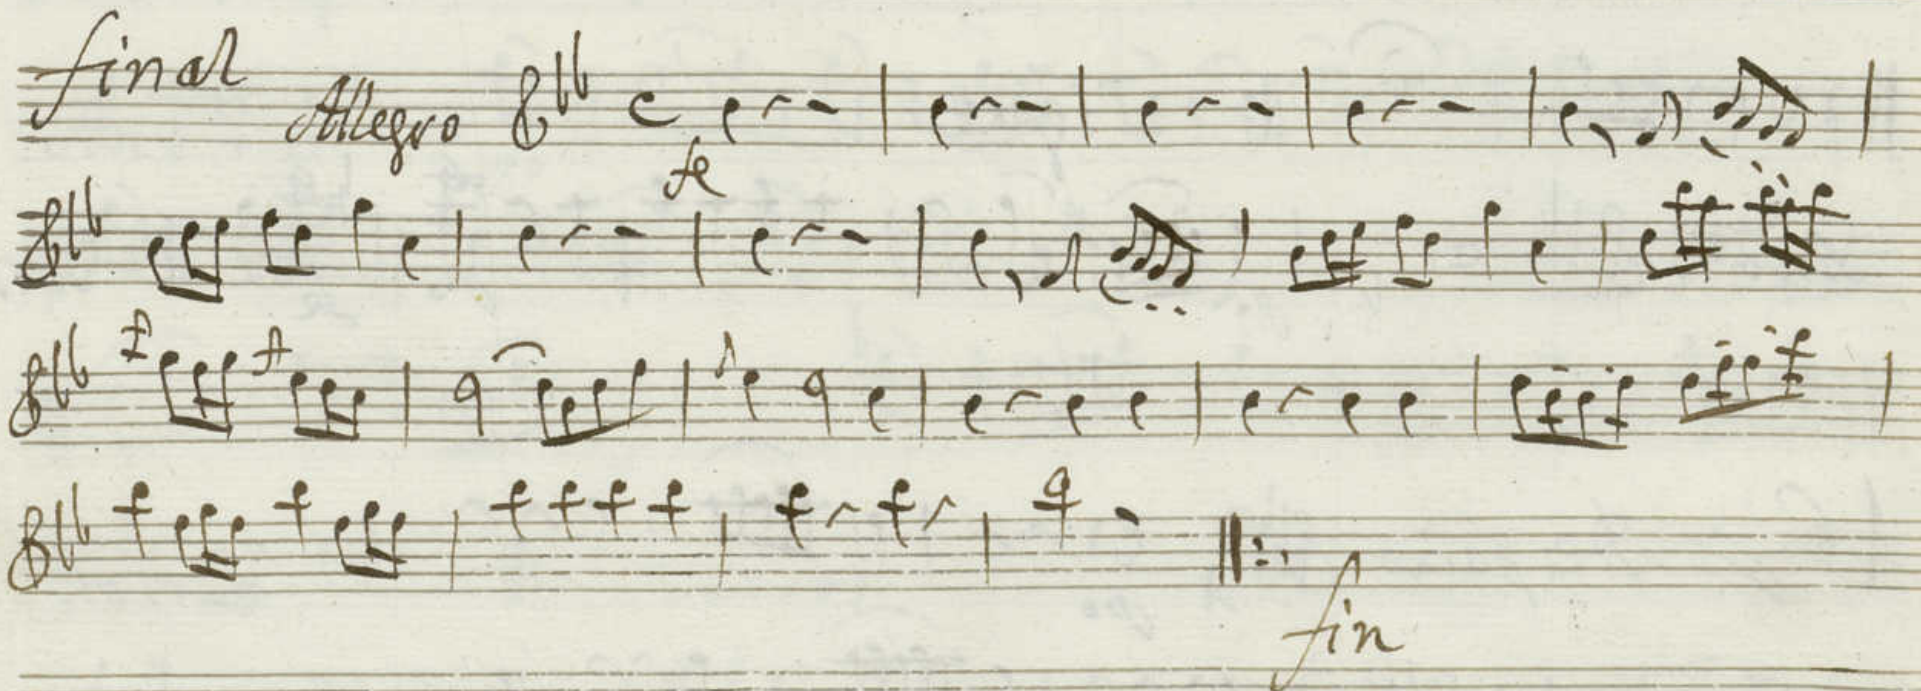 final
Allegro
fe
fin